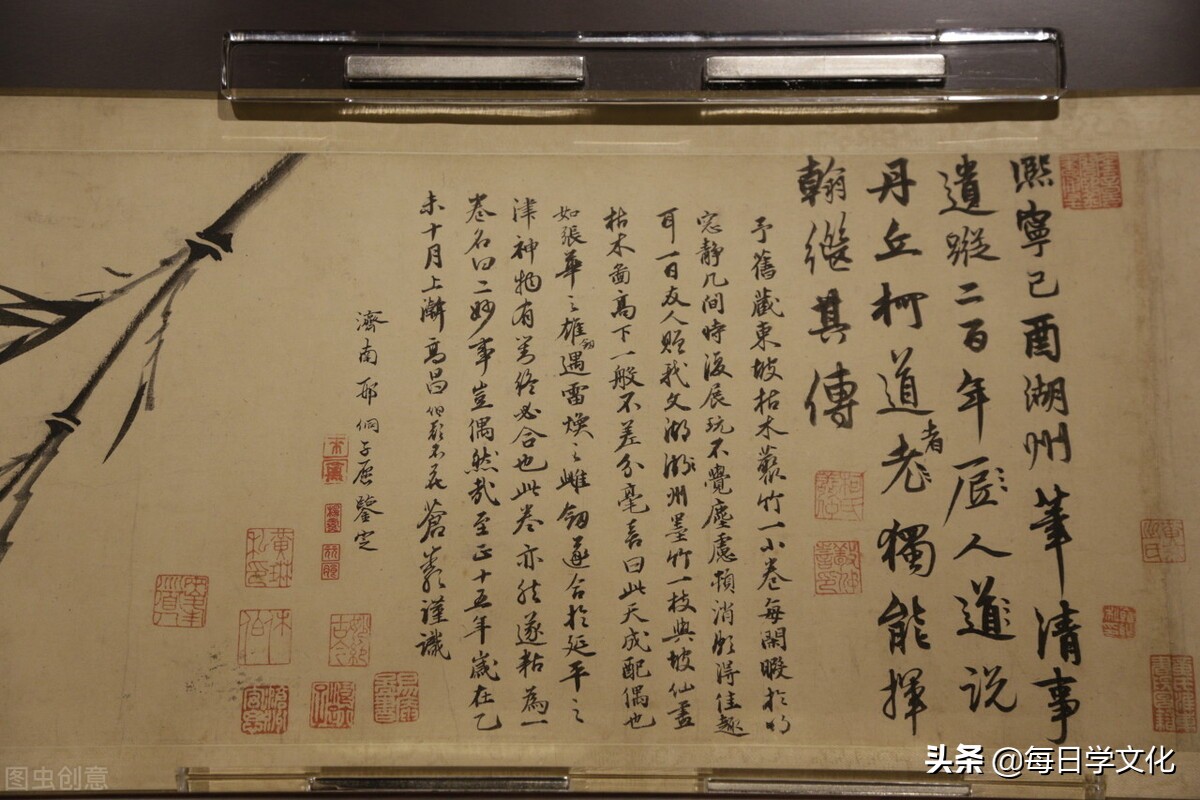 熙寧己酉湖州筆清事
遺蹤二百年人道説
丹丘柯道老者獨能揮
翰繼其傳
予舊藏東坡枯木藂竹一小卷每閑暇於明
窓靜几間時復展玩不覺塵慮頓消頗得佳趣
耳一日友人贈我文湖湖州墨竹一枝與坡仙畫
枯木畵高下一般不差分毫喜曰此天成配偶也
如張華之雄劍遇雷煥之雌劍遂合於延平之
津神物有終必合也此卷亦然遂粘為一
卷名曰二妙事豈偶然哉至正十五年歲在乙
未十月上澣高昌蒼巖謹識
濟南邢侗子愿鑒定
图虫创意
头条 @每日学文化